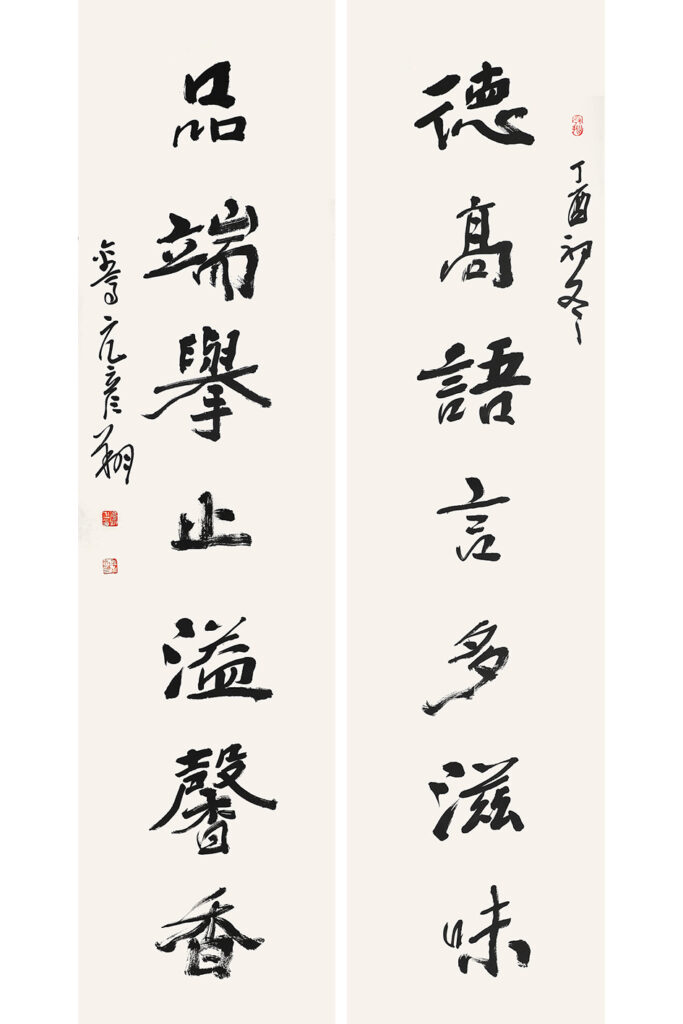 丁酉初冬
德高語言多滋味
品端舉止溢馨香
彦翔